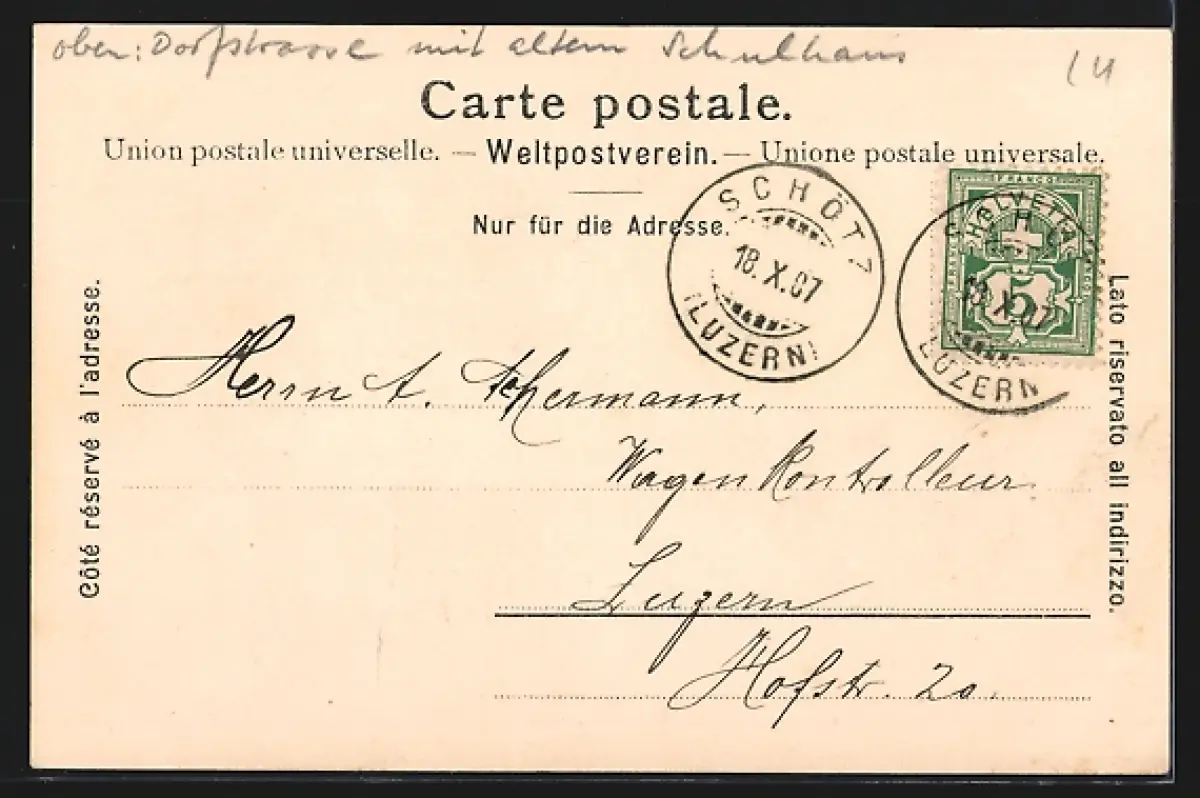 oben: Dorfstrasse mit altem Schulhaus
LU
Carte postale.
Union postale universelle. — Weltpostverein. — Unione postale universale.
Nur für die Adresse.
SCHÖTZ
18.X.07
(LUZERN)
FRANCO
HELVETIA
5
SCHÖTZ
18.X.07
(LUZERN)
Côté réservé à l'adresse.
Lato riservato all indirizzo.
Herrn A. Achermann,
Wagenkontrolleur
Luzern
Hofstr. 20.